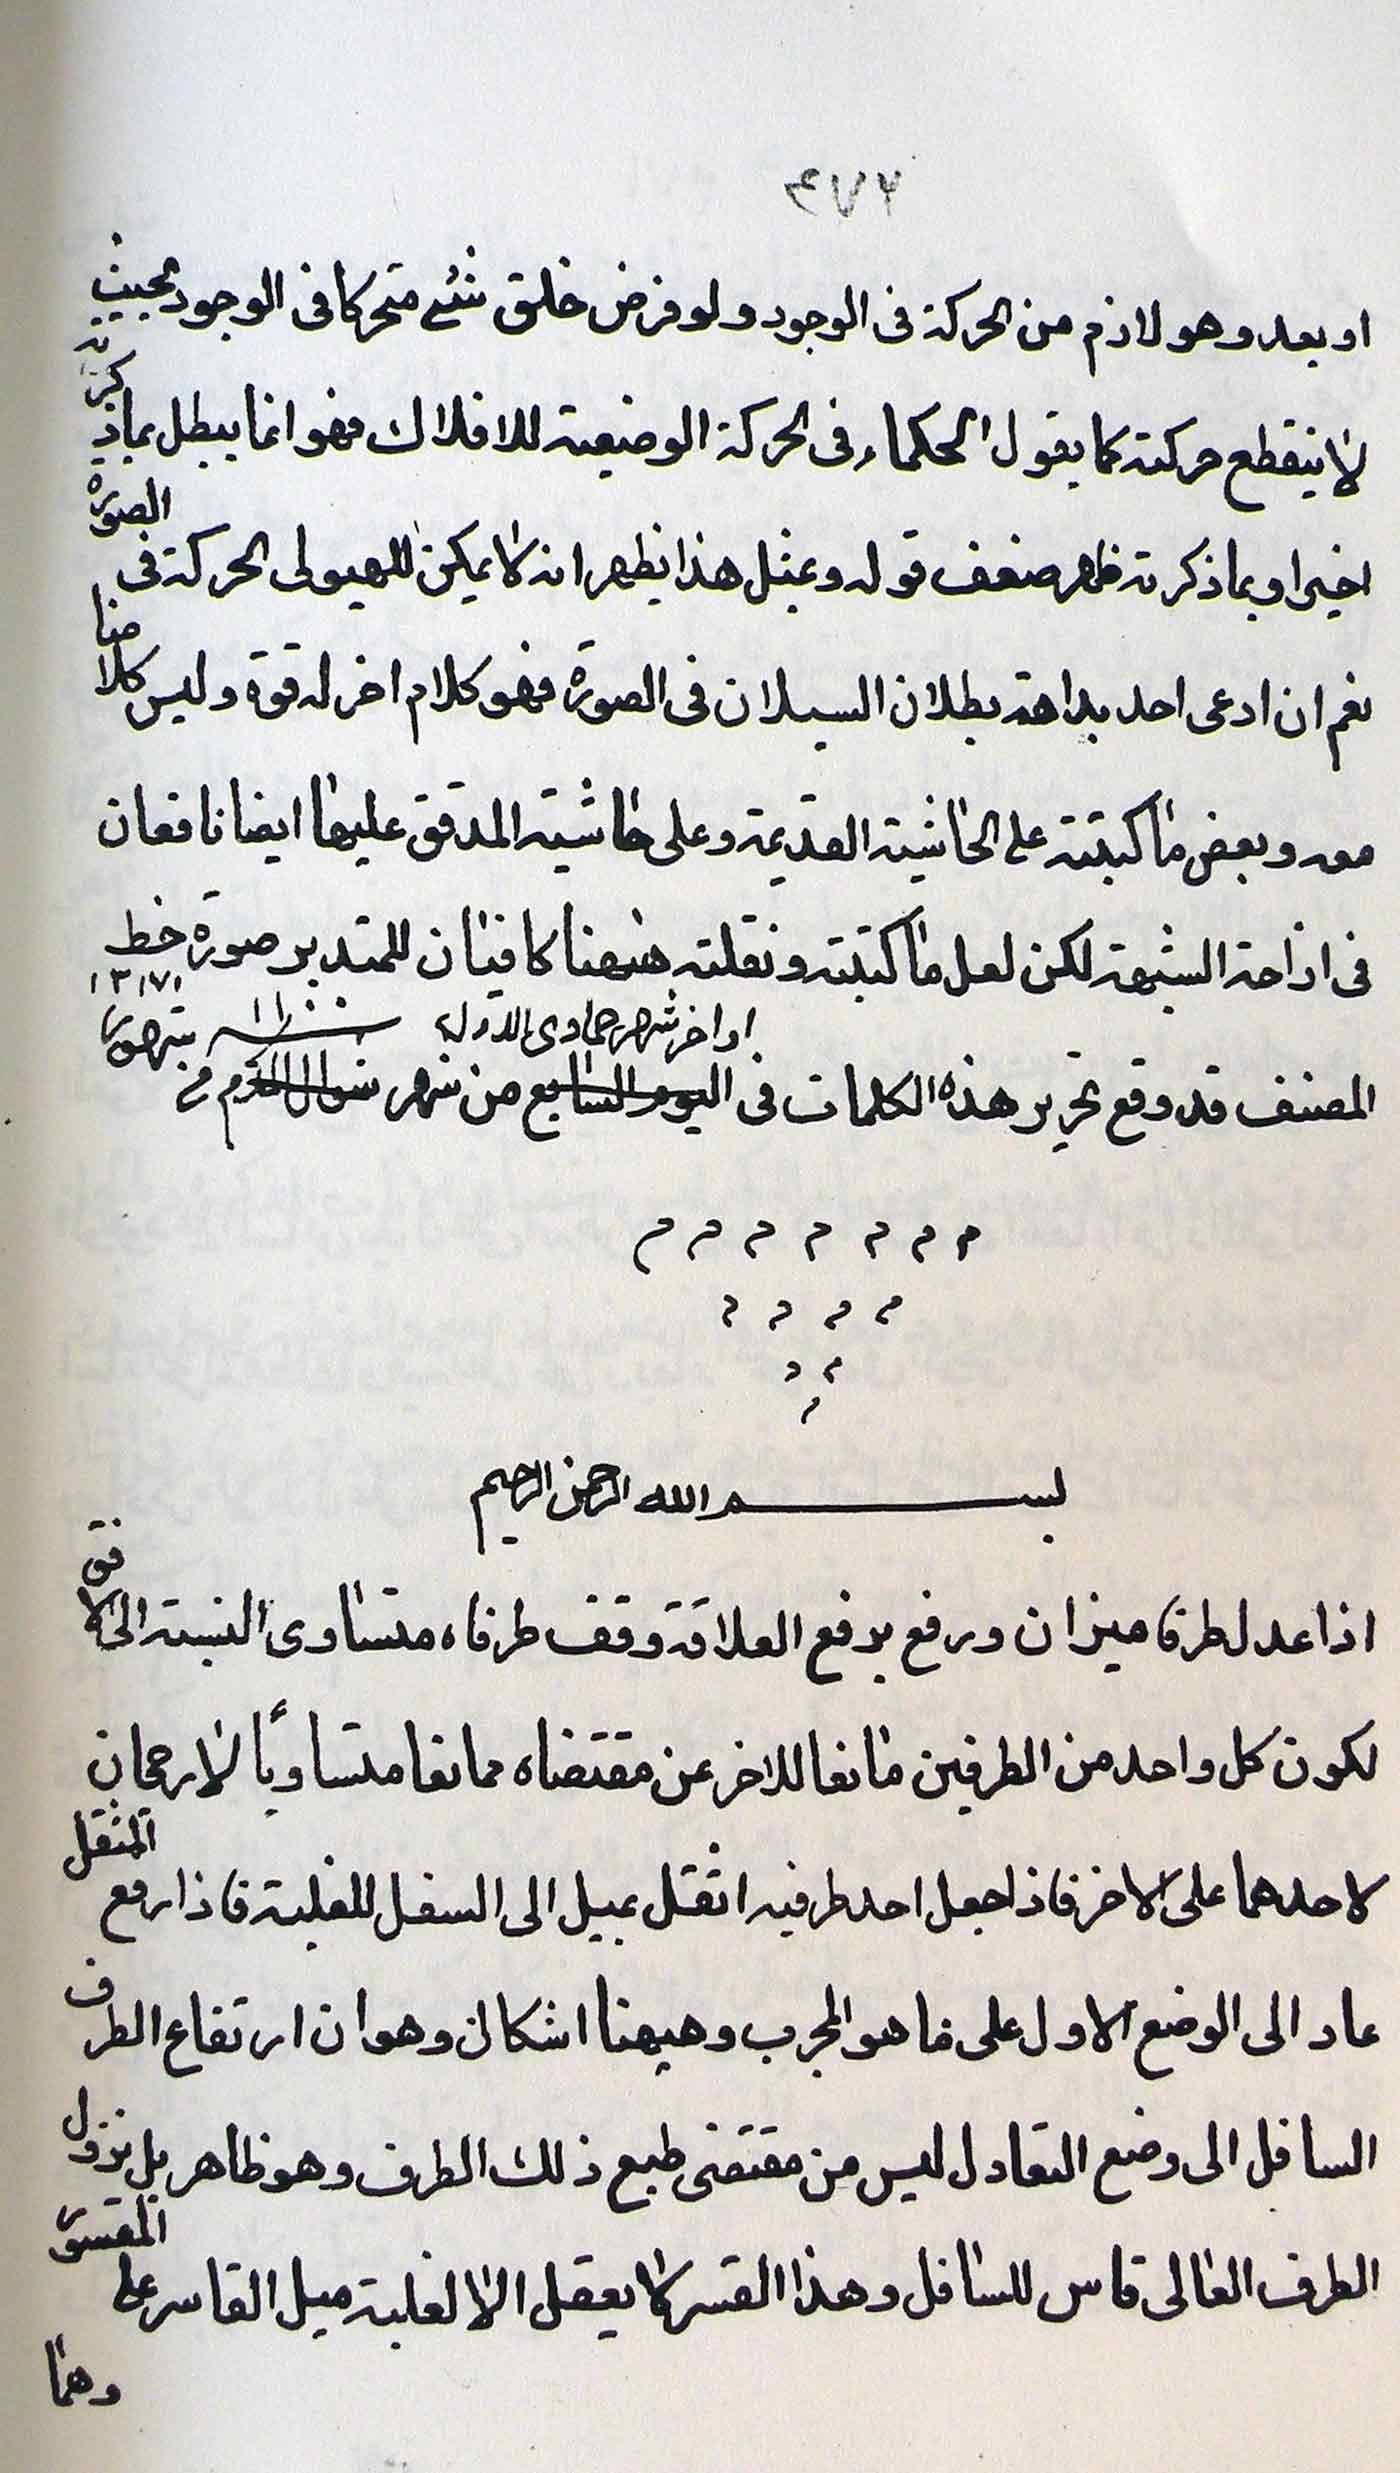 ٤٧٢
او بعد وهو لازم من الحركة فى الوجود ولو فرض خلق شئ متحركا فى الوجود بحيث
لا ينقطع حركته كما يقول الحكماء فى الحركة الوضعية للافلاك فهو انما يبطل بما ذكرته
اخيرا وبما ذكرته ظهر ضعف قوله وبمثل هذا يظهر انه لا يمكن للهيولى الحركة فى الصورة
نعم ان ادعى احد بداهة بطلان السيلان فى الصورة فهو كلام اخر له قوة وليس كلامنا
معه وبعض ما كتبته على الحاشية القديمة وعلى حاشية المدقق عليها ايضا نافعان
فى ازاحة الشبهة لكن لعل ما كتبته ونقلته هيهنا كافيان للمتدبر صورة خط
اواخر شهر جمادى الاول
المصنف قد وقع تحرير هذه الكلمات فى اليوم السابع من شهر شوال المكرم
بسم الله الرحمن الرحيم
اذا عدل طرفا ميزان ورفع برفع العلاقة وقف طرفاه متساوى النسبة الى الافق
لكون كل واحد من الطرفين مانعا للاخر عن مقتضاه ممانعا متساويا لا رجحان
لاحدهما على الاخر فاذا جعل احد طرفيه اثقل يميل الى السفل للغلبة فاذا رفع المثقل
عاد الى الوضع الاول على ما هو المجرب وهيهنا اشكال وهو ان ارتفاع الطرف
السافل الى وضع التعادل ليس من مقتضى طبع ذلك الطرف وهو ظاهر بل نزول
الطرف العالى قاسر للسافل وهذا القسر لا يعقل الا لغلبة ميل القاسر على المقسور
وهما